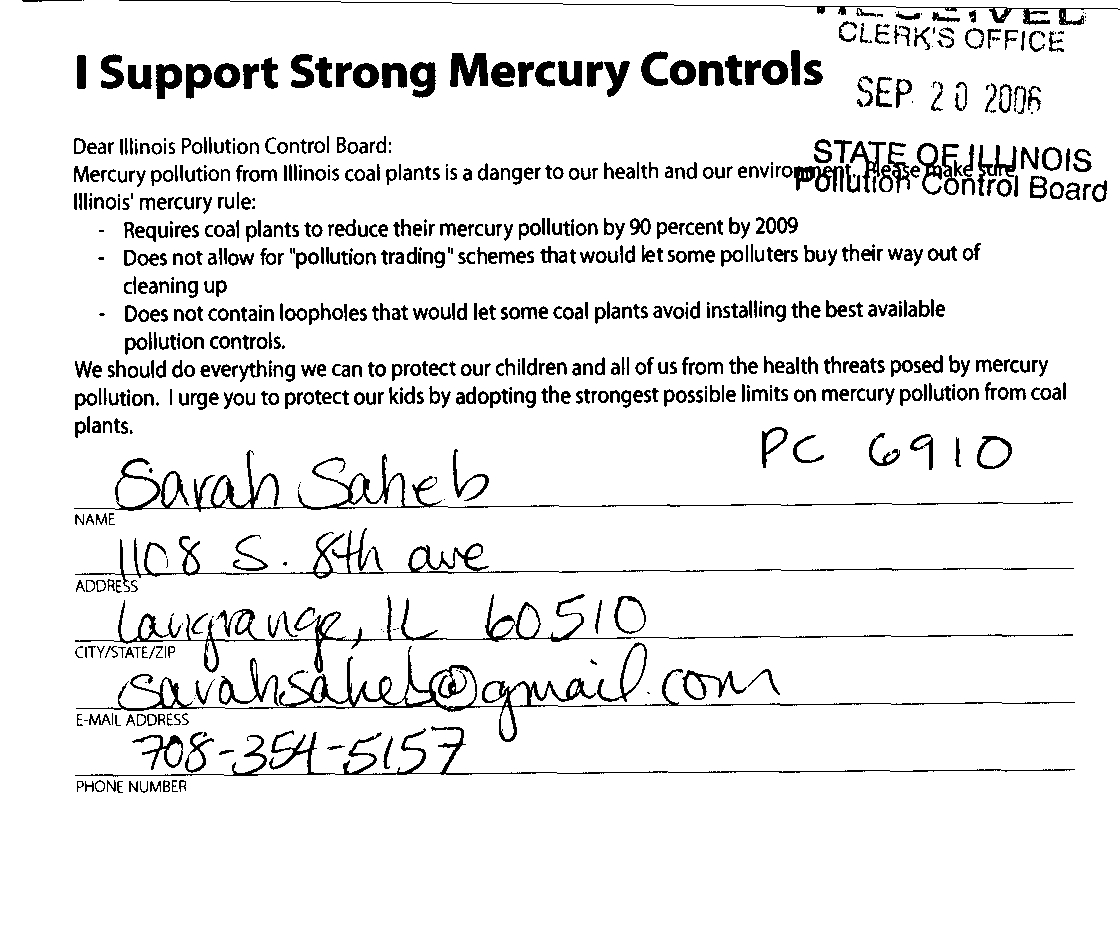 RECEIVED
CLERK'S OFFICE
SEP 20 2006
STATE OF ILLINOIS
Pollution Control Board
I Support Strong Mercury Controls
Dear Illinois Pollution Control Board:
Mercury pollution from Illinois coal plants is a danger to our health and our environment. Please make sure
Illinois' mercury rule:
- Requires coal plants to reduce their mercury pollution by 90 percent by 2009
- Does not allow for "pollution trading" schemes that would let some polluters buy their way out of
cleaning up
- Does not contain loopholes that would let some coal plants avoid installing the best available
pollution controls.
We should do everything we can to protect our children and all of us from the health threats posed by mercury
pollution. I urge you to protect our kids by adopting the strongest possible limits on mercury pollution from coal
plants.
PC 6910
Sarah Saheb
NAME
1108 S. 8th ave
ADDRESS
Laugrange, IL 60510
CITY/STATE/ZIP
sarahsaheb@gmail.com
E-MAIL ADDRESS
708-354-5157
PHONE NUMBER